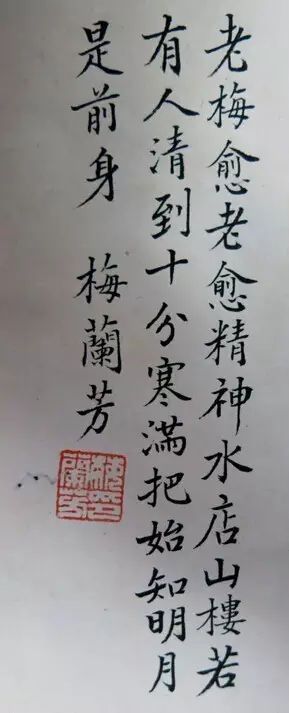 老梅愈老愈精神水店山樓若
有人清到十分寒滿把始知明月
是前身 梅蘭芳